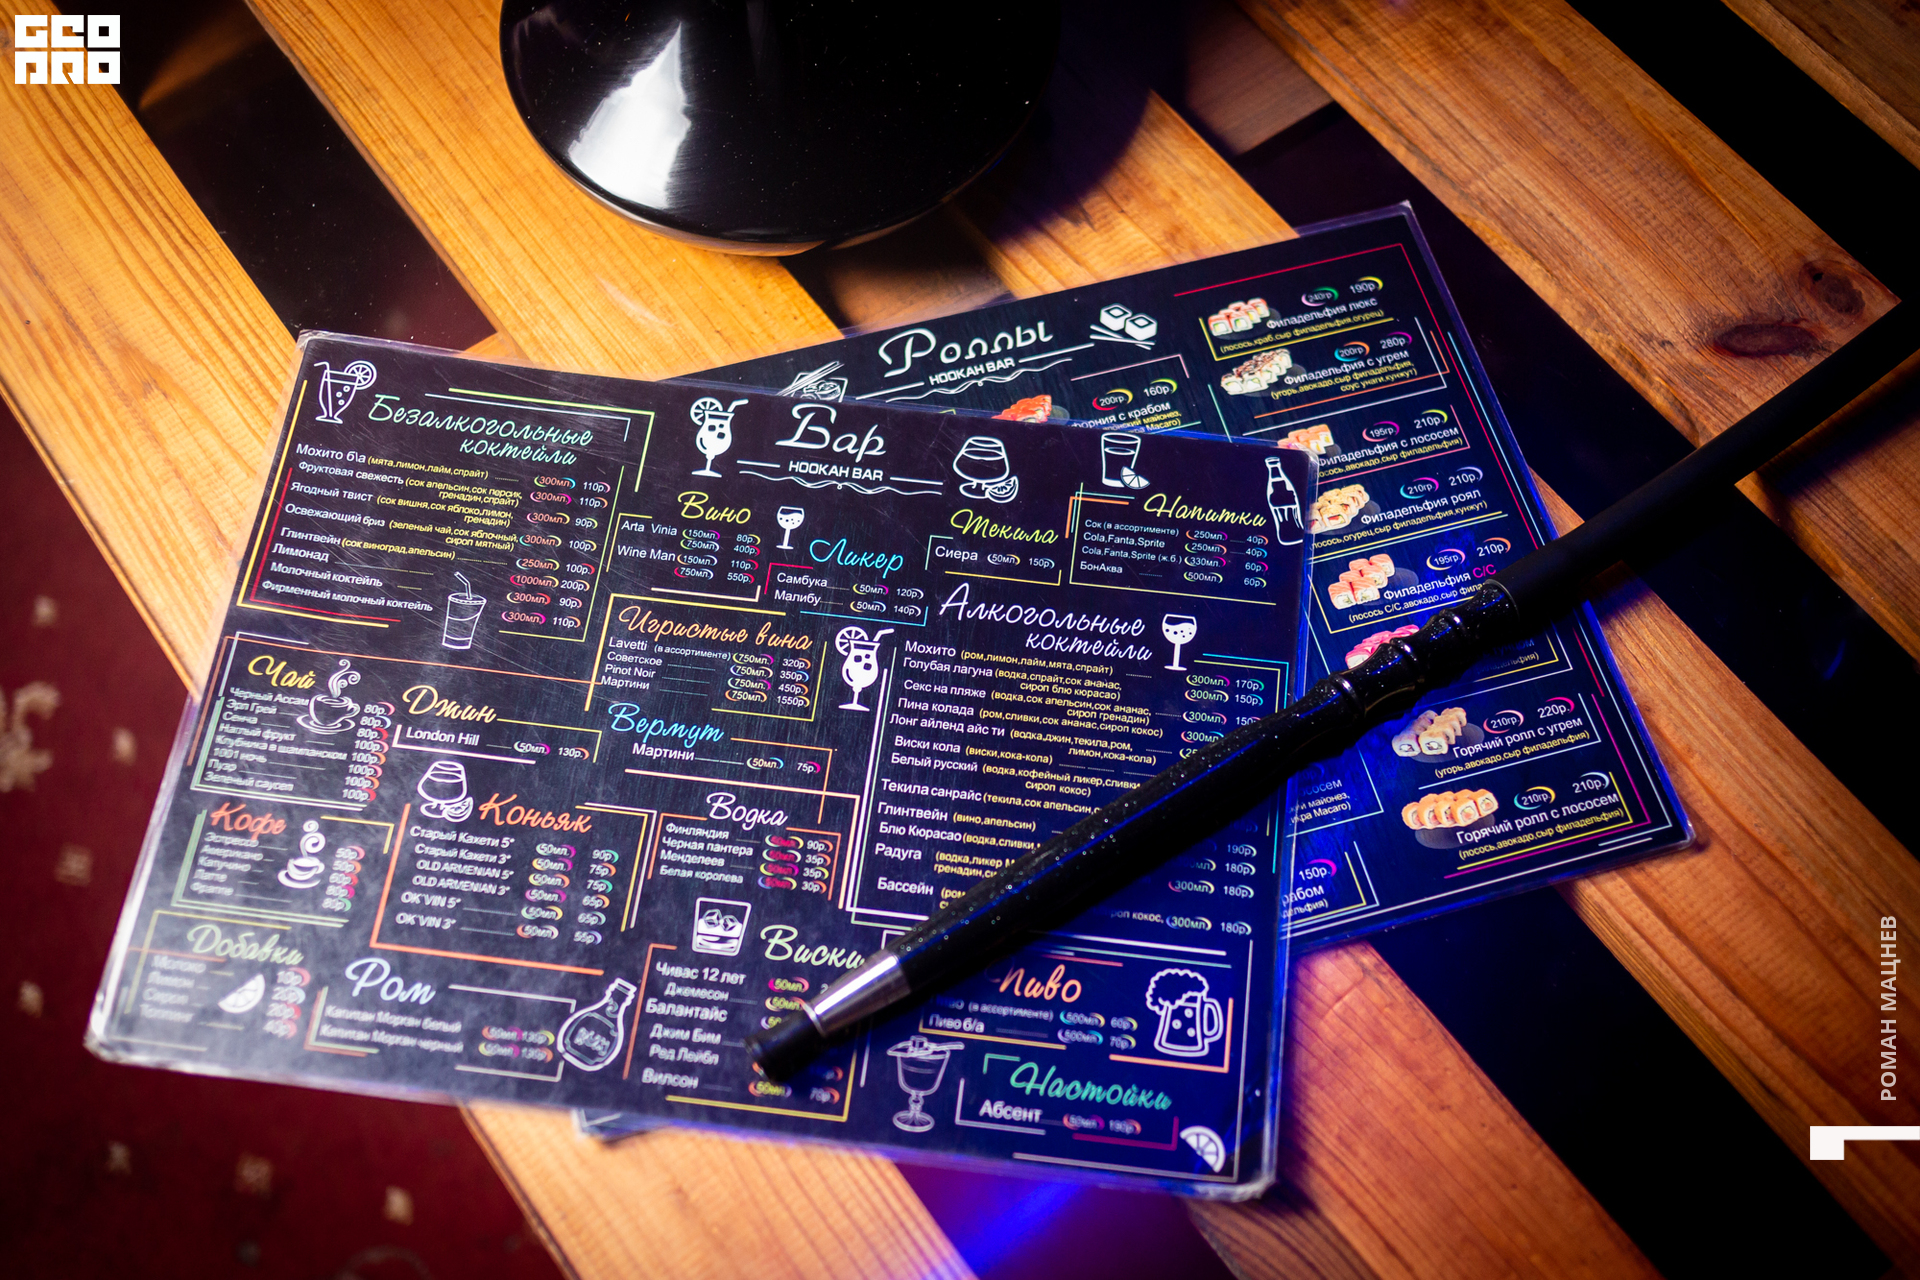 GEO
PRO
Роллы
HOOKAH BAR
200гр 160р.
240гр 190р.
Филадельфия люкс
(лосось,краб,сыр филадельфия,огурец)
200гр 280р.
Филадельфия с угрем
(угорь,авокадо,сыр филадельфия,
соус унаги,кунжут)
195гр 210р.
Филадельфия с лососем
210гр 210р.
Филадельфия роял
195гр 210р.
Филадельфия С/С
210гр 220р.
Горячий ролл с угрем
(угорь,авокадо,сыр филадельфия)
210гр 210р.
Горячий ролл с лососем
(лосось,авокадо,сыр филадельфия)
150р.
Бар
HOOKAH BAR
Безалкогольные
коктейли
Мохито б\а (мята,лимон,лайм,спрайт) 300мл. 110р.
Фруктовая свежесть (сок апельсин,сок персик,
гренадин,спрайт) 300мл. 110р.
Ягодный твист (сок вишня,сок яблоко,лимон,
гренадин) 300мл. 90р.
Освежающий бриз (зеленый чай,сок яблочный,
сироп мятный) 300мл. 100р.
Глинтвейн (сок виноград,апельсин) 250мл. 100р.
Лимонад 1000мл. 200р.
Молочный коктейль 300мл. 90р.
Фирменный молочный коктейль 300мл. 110р.
Вино
Arta Vinia 150мл. 80р.
750мл. 400р.
Wine Man 150мл. 110р.
750мл. 550р.
Ликер
Самбука 50мл. 120р.
Малибу 50мл. 140р.
Текила
Сиера 50мл. 150р.
Напитки
Сок (в ассортименте) 250мл. 40р.
Cola,Fanta,Sprite 250мл. 40р.
Cola,Fanta,Sprite (ж.б.) 330мл. 60р.
БонАква 500мл. 60р.
Игристые вина
Lavetti (в ассортименте) 750мл. 320р.
Советское 750мл. 350р.
Pinot Noir 750мл. 450р.
Мартини 750мл. 1550р.
Алкогольные
коктейли
Мохито (ром,лимон,лайм,мята,спрайт) 300мл. 170р.
Голубая лагуна (водка,спрайт,сок ананас,
сироп блю кюрасао) 300мл. 150р.
Секс на пляже (водка,сок апельсин,сок ананас,
сироп гренадин) 300мл. 150р.
Пина колада (ром,сливки,сок ананас,сироп кокос)
Лонг айленд айс ти (водка,джин,текила,ром,
лимон,кока-кола)
Виски кола (виски,кока-кола)
Белый русский (водка,кофейный ликер,сливки
сироп кокос)
Текила санрайс (текила,сок апельсин
Глинтвейн (вино,апельсин)
Блю Кюрасао (водка,сливки 190р.
Радуга (водка,ликер 180р.
300мл. 180р.
Бассейн (ром
кокос, 300мл. 180р.
Чай
Черный Ассам 80р.
Эрл Грей 80р.
Сенча 80р.
Наглый фрукт 100р.
Клубника в шампанском 100р.
1001 ночь 100р.
Пуэр 100р.
Зеленый саусеп 100р.
Джин
London Hill 50мл. 130р.
Вермут
Мартини 50мл. 75р.
Кофе
Эспрессо 50р.
Американо
Капучино
Латте 80р.
Фраппе 80р.
Коньяк
Старый Кахети 5* 50мл. 90р.
Старый Кахети 3* 50мл. 75р.
OLD ARMENIAN 5* 50мл. 75р.
OLD ARMENIAN 3* 50мл. 65р.
OK'VIN 5* 50мл. 65р.
OK'VIN 3* 50мл. 55р.
Водка
Финляндия 90р.
Черная пантера 35р.
Менделеев 35р.
Белая королева 30р.
Добавки
Молоко 10р.
Лимон 20р.
Сироп 20р.
Топпинг 40р.
Ром
Капитан Морган белый 50мл. 130р.
Капитан Морган черный 50мл. 130р.
Виски
Чивас 12 лет 50мл.
Джемесон 50мл.
Балантайс
Джим Бим
Ред Лейбл
Вилсон 50мл. 70р.
Пиво
(в ассортименте) 500мл. 60р.
Пиво б/а 500мл. 70р.
Настойки
Абсент 50мл. 190р.
РОМАН МАЦНЕВ